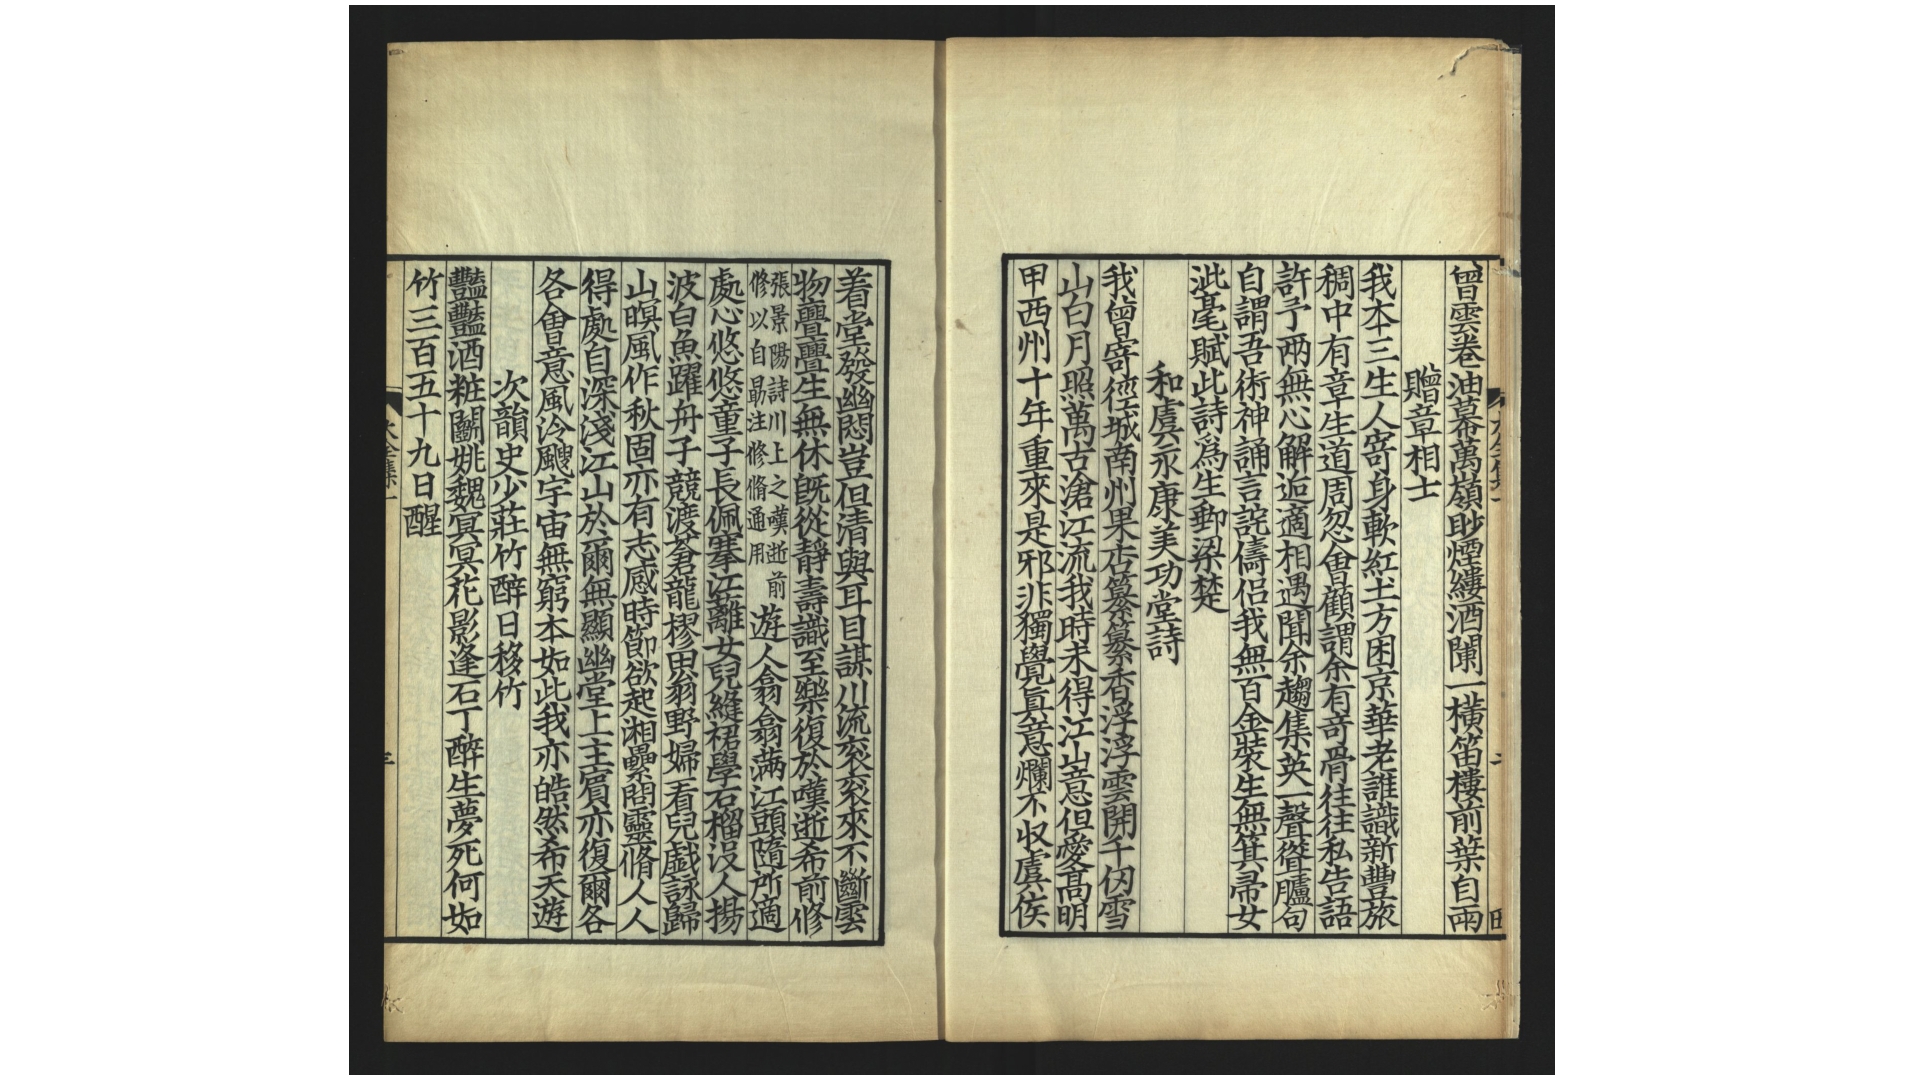 曾雲卷油幕萬嶺眇煙縷酒闌一橫笛樓前葉自雨
贈章相士
我本三生人寄身軟紅土方困京華老誰識新豐旅
稠中有章生道周忽會顧謂余有奇骨往往私告語
許予兩無心解逅適相遇聞余趨集英一聲聳臚句
自謂吾術神誦言詫儔侣我無百金裝生無箕帚女
泚毫賦此詩爲生郵梁楚
和虞永康美功堂詩
我曾寄徑城南州果杏篆篆香浮浮雲開千仞雪
山白月照萬古滄江流我時未得江山意但愛高明
甲西州十年重來是邪非獨覺眞意爛不収虞侯
着堂發幽悶豈但清與耳目謀川流衮衮來不斷雲
物亹亹生無休旣從靜壽識至樂復於嘆逝希前修
張景陽詩川上之嘆逝前
修以自勗注修脩通用
遊人翕翕滿江頭隨所適
處心悠悠童子長佩搴江蘺女兒縫裙學石榴没人揚
波白魚躍舟子競渡蒼龍樛田翁野婦看兒戲詠歸
山暝風作秋固亦有志感時節欲起湘纍問靈脩人人
得處自深淺江山於爾無顯幽堂上主賓亦復爾各
各會意風泠颼宇宙無窮本如此我亦皓然希天遊
次韻史少莊竹醉日移竹
豔豔酒粧鬭姚魏冥冥花影逢石丁醉生夢死何如
竹三百五十九日醒